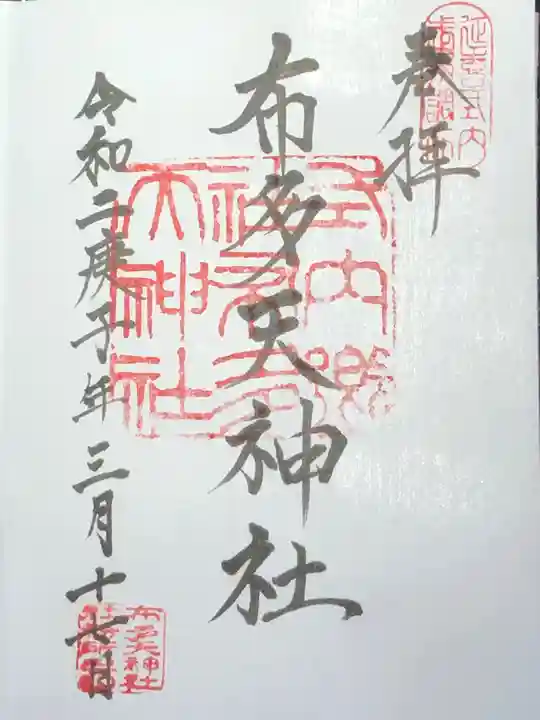 奉拝
延喜式内
布多天神社
式内郷社布多天神社
令和二庚子年三月十七日
布多天神社